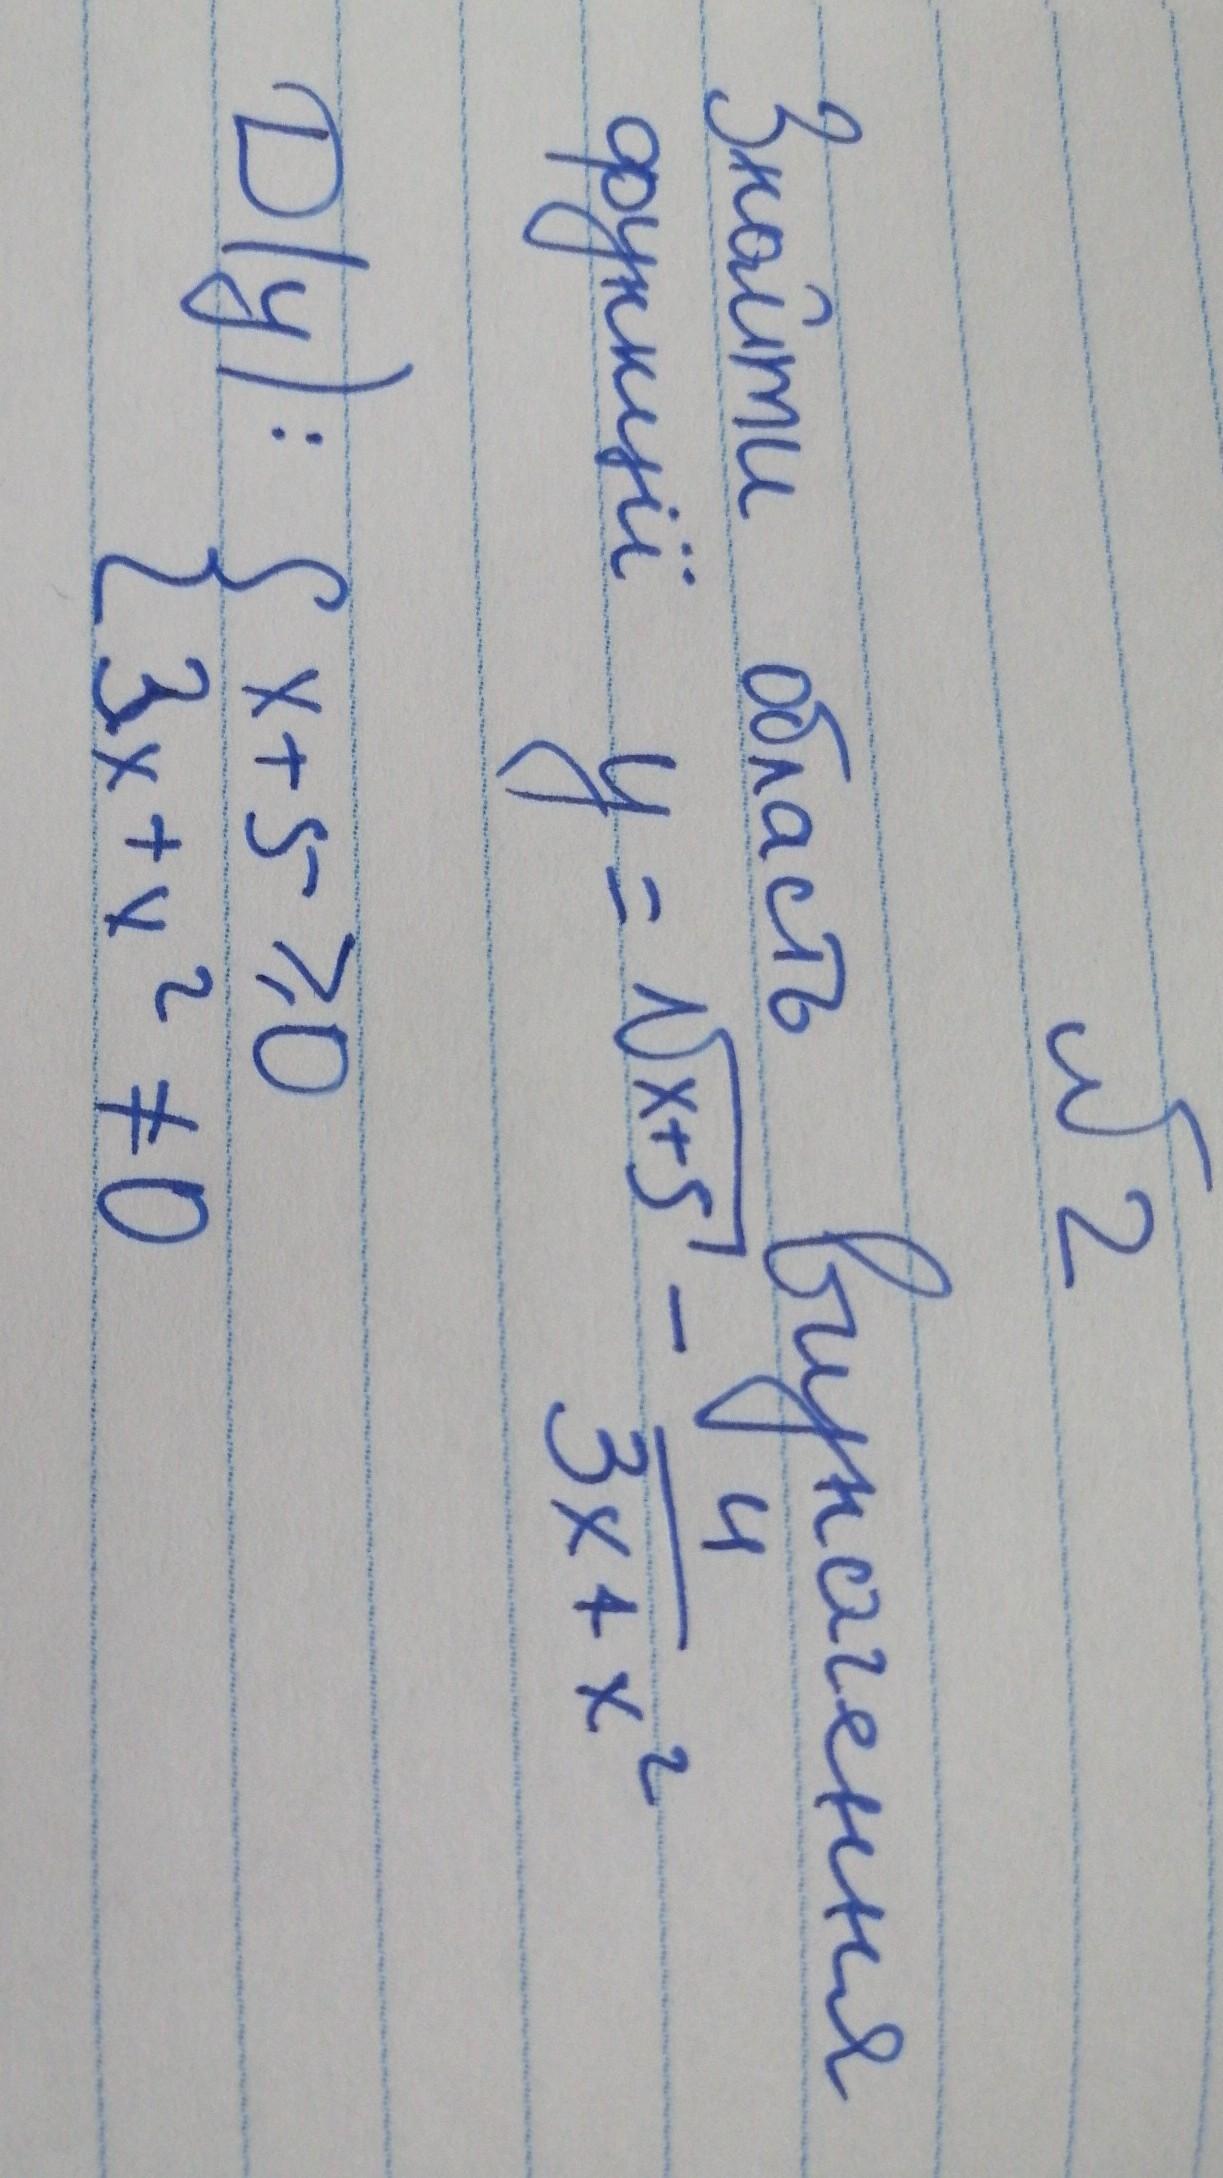 №2
Знайти область визначення
функції y = √x+5 - 4/3x+x²
D(y): { x+5 ≥ 0
3x+x² ≠ 0